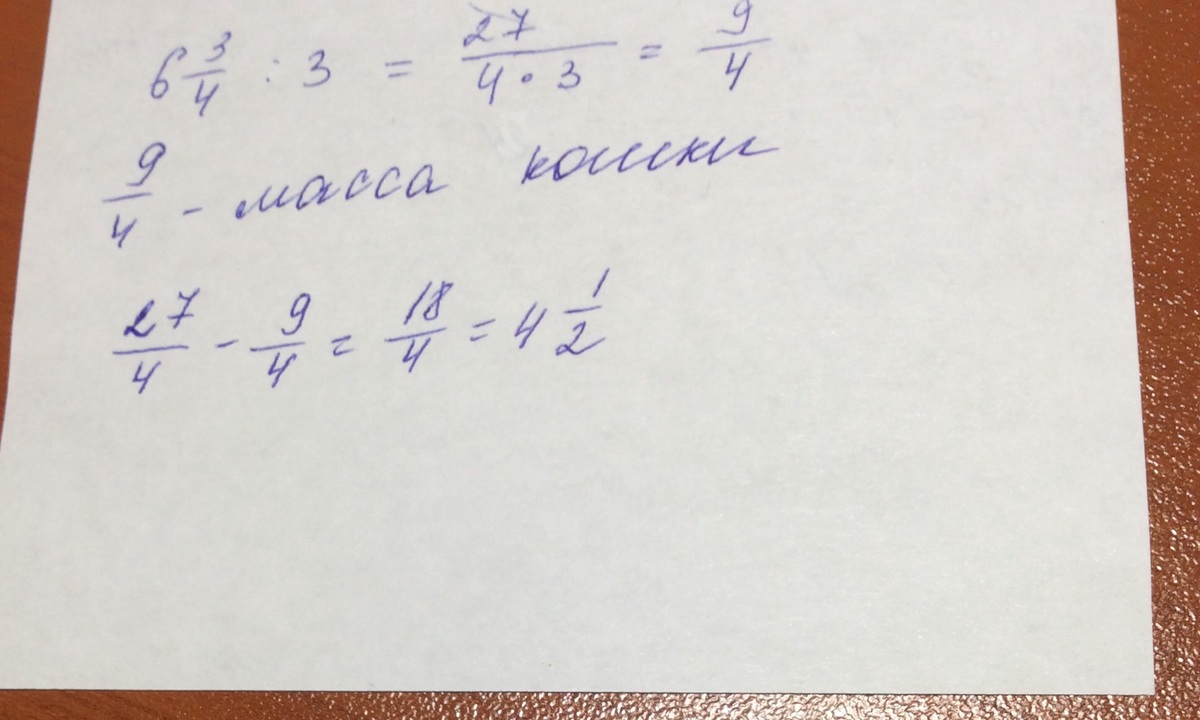 6 3/4 : 3 = 27/(4 · 3) = 9/4
9/4 - масса кошки
27/4 - 9/4 = 18/4 = 4 1/2